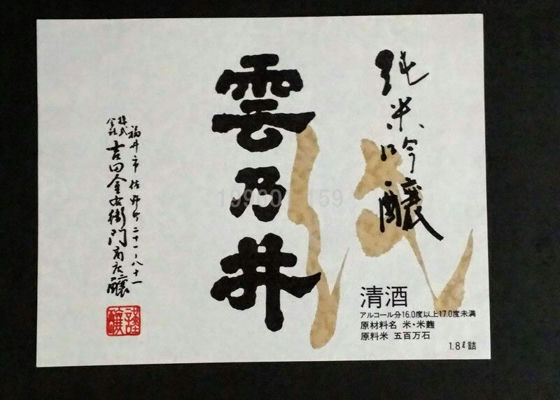 純米吟醸
雲乃井
清酒
アルコール分16.0度以上17.0度未満
原材料名 米・米麹
原料米 五百万石
1.8ℓ詰
福井市佐野町二十一ー八十一
株式会社
吉田金右衛門商店醸